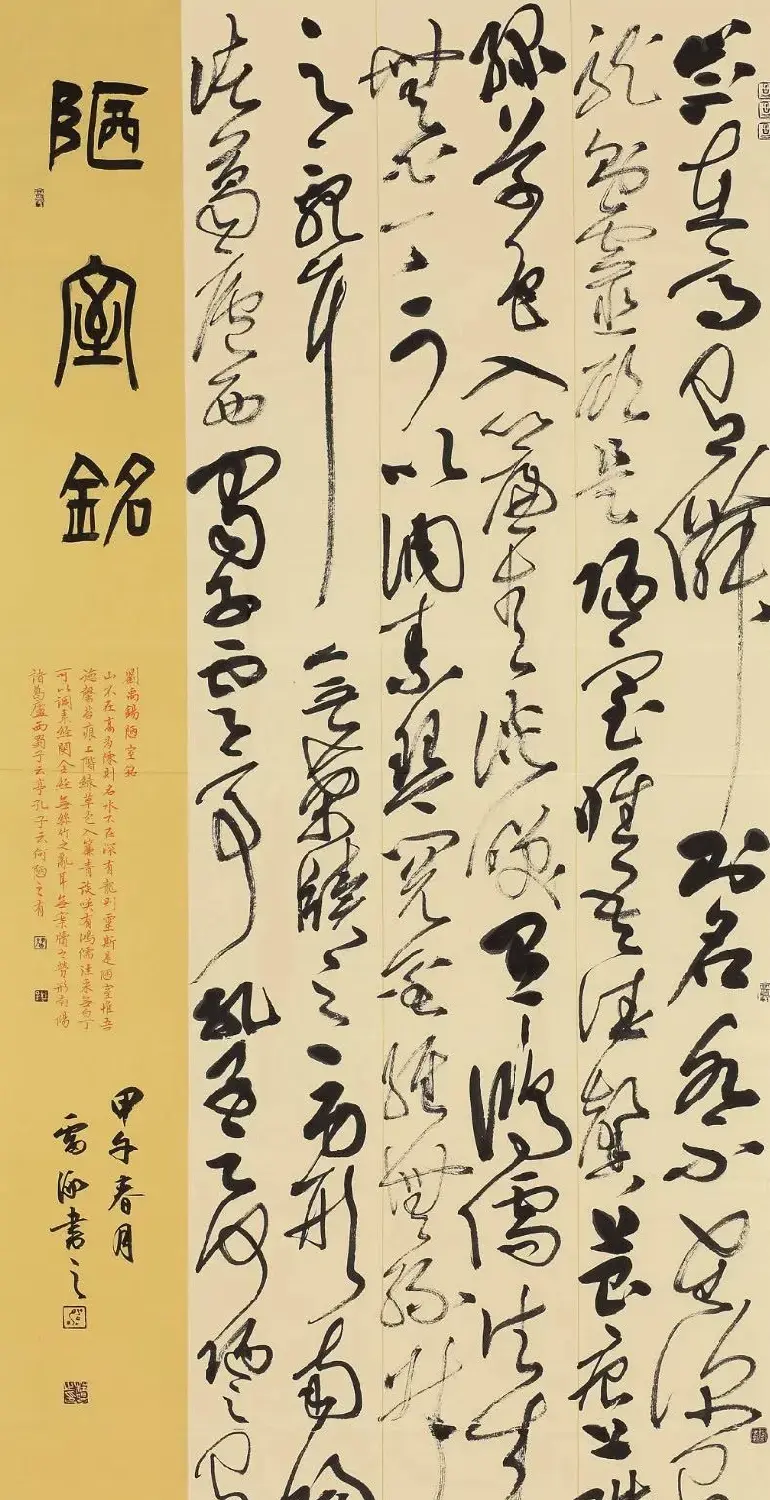 山不在高有僊則名水不在深有
龍則靈斯是陋室唯吾德馨苔痕上階
綠草色入簾青談笑有鴻儒往來
無白丁可以調素琴閱金經無絲竹
之亂耳無案牘之勞形南陽
諸葛廬西蜀子雲亭孔子云何陋之有
陋室銘
劉禹錫陋室銘
山不在高有仙則名水不在深有龍則靈斯是陋室惟吾
德馨苔痕上階綠草色入簾青談笑有鴻儒往來無白丁
可以調素琴閱金經無絲竹之亂耳無案牘之勞形南陽
諸葛廬西蜀子云亭孔子云何陋之有
甲午春月
書之